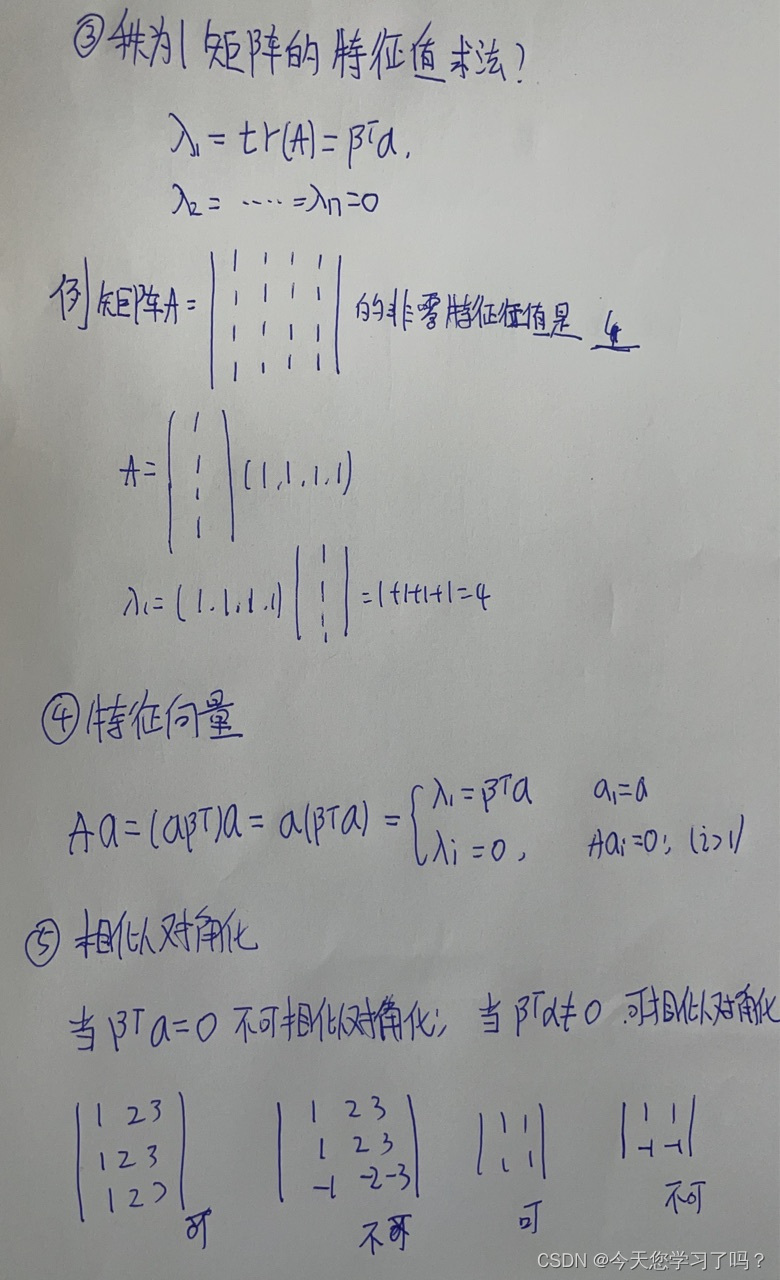 ③秩为1矩阵的特征值求法?
λ₁=tr(A)=βᵀα.
λ₂=……=λn=0
例 矩阵A=
|1 1 1 1|
|1 1 1 1|
|1 1 1 1|
|1 1 1 1|
的非零特征值是 4
A=
(1
1
1
1)
(1,1,1,1)
λ₁=(1.1.1.1)
|1
1
1
1|
=1+1+1+1=4
④特征向量
Aα=(αβᵀ)α=α(βᵀα)={
λ₁=βᵀα α₁=α
λi=0, Aαi=0; (i>1)
⑤ 相似对角化
当βᵀα=0 不可相似对角化; 当βᵀα≠0 可相似对角化
|1 2 3|
|1 2 3|
|1 2 3|
可
|1 2 3|
|1 2 3|
|-1 -2 -3|
不可
|1 1|
|1 1|
可
|1 1|
|-1 -1|
不可
CSDN @今天您学习了吗?